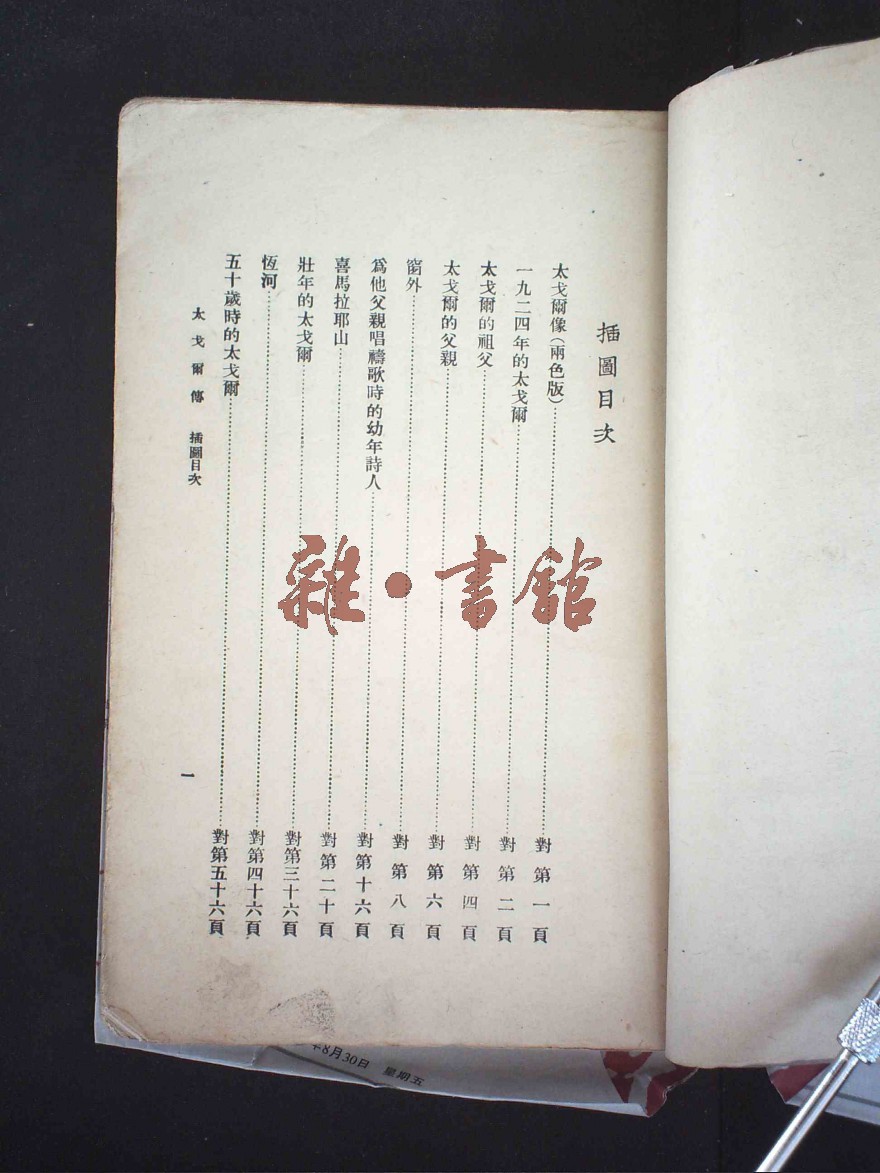 插圖目次
太戈爾像（兩色版）……對第一頁
一九二四年的太戈爾……對第二頁
太戈爾的祖父……對第四頁
太戈爾的父親……對第六頁
窗外……對第八頁
爲他父親唱禱歌時的幼年詩人……對第十六頁
喜馬拉耶山……對第二十頁
壯年的太戈爾……對第三十六頁
恆河……對第四十六頁
五十歲時的太戈爾……對第五十六頁
太戈爾傳 插圖目次 一
雜·書館
年8月30日 星期五